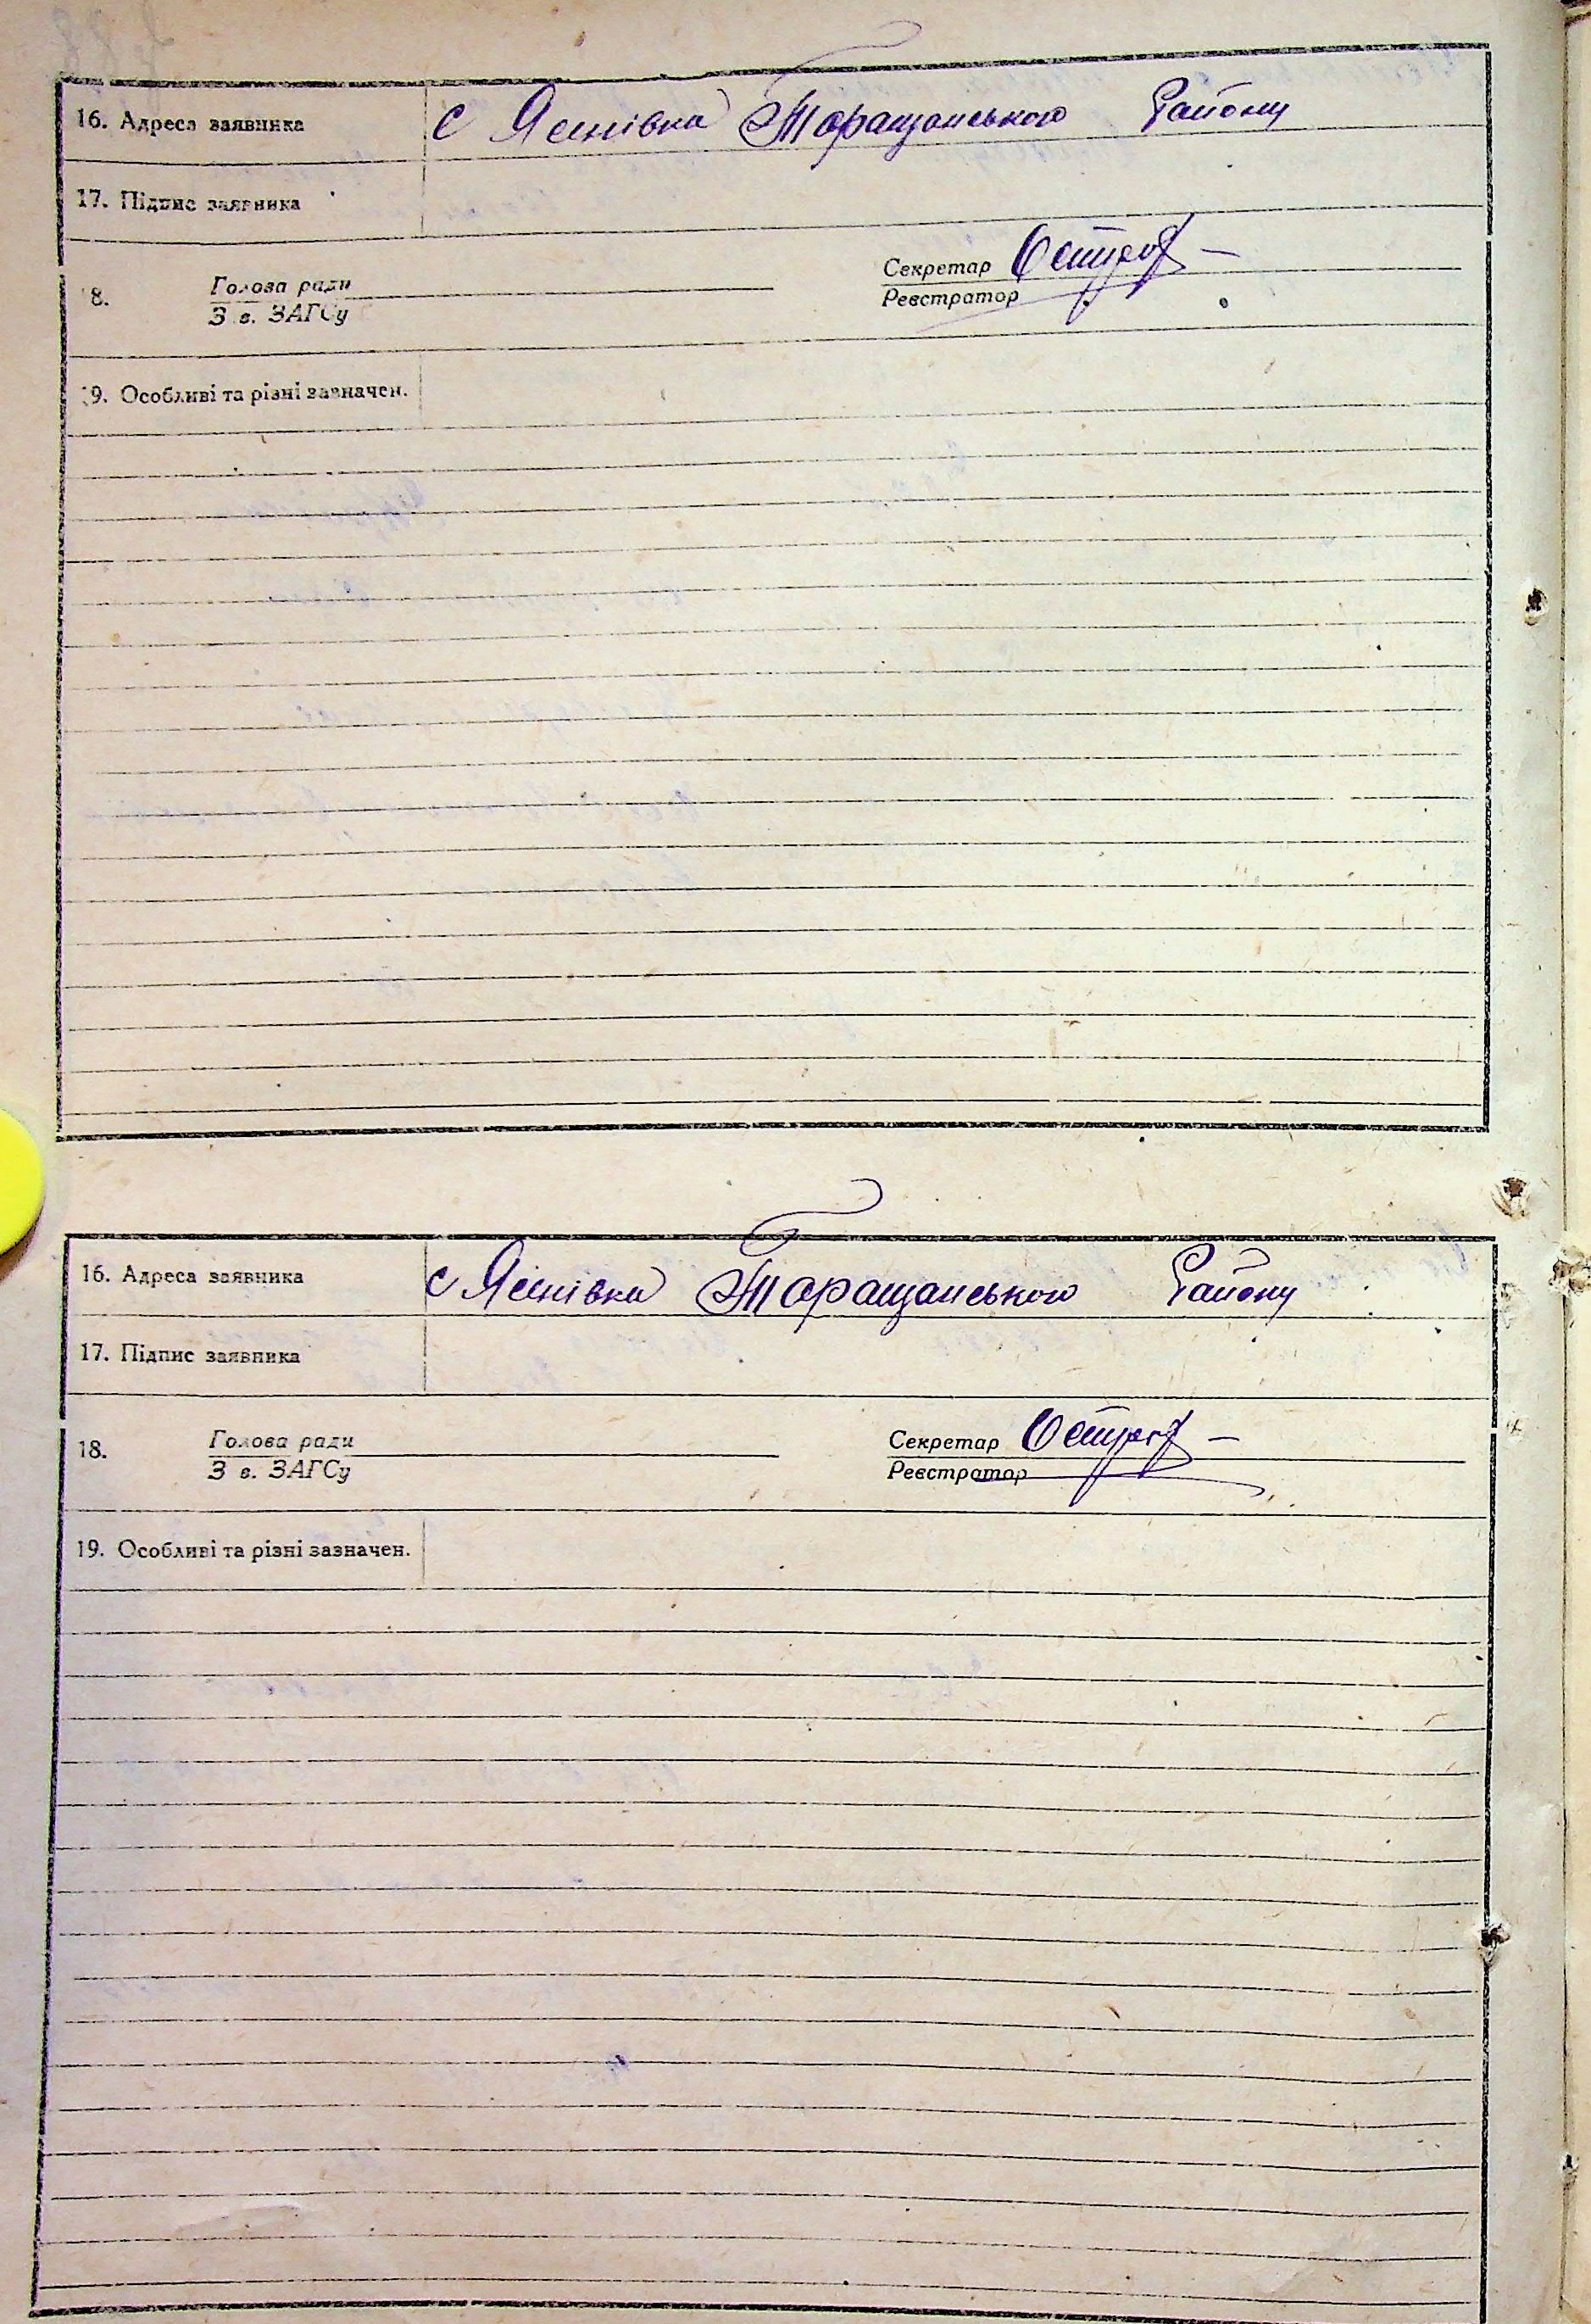 16. Адреса заявника с Яснівка Таращанського Району
17. Підпис заявника
18. Голова ради Секретар
Зав. ЗАГСу Реєстратор
19. Особливі та різні зазначен.
16. Адреса заявника с Яснівка Таращанського Району
17. Підпис заявника
18. Голова ради Секретар
Зав. ЗАГСу Реєстратор
19. Особливі та різні зазначен.